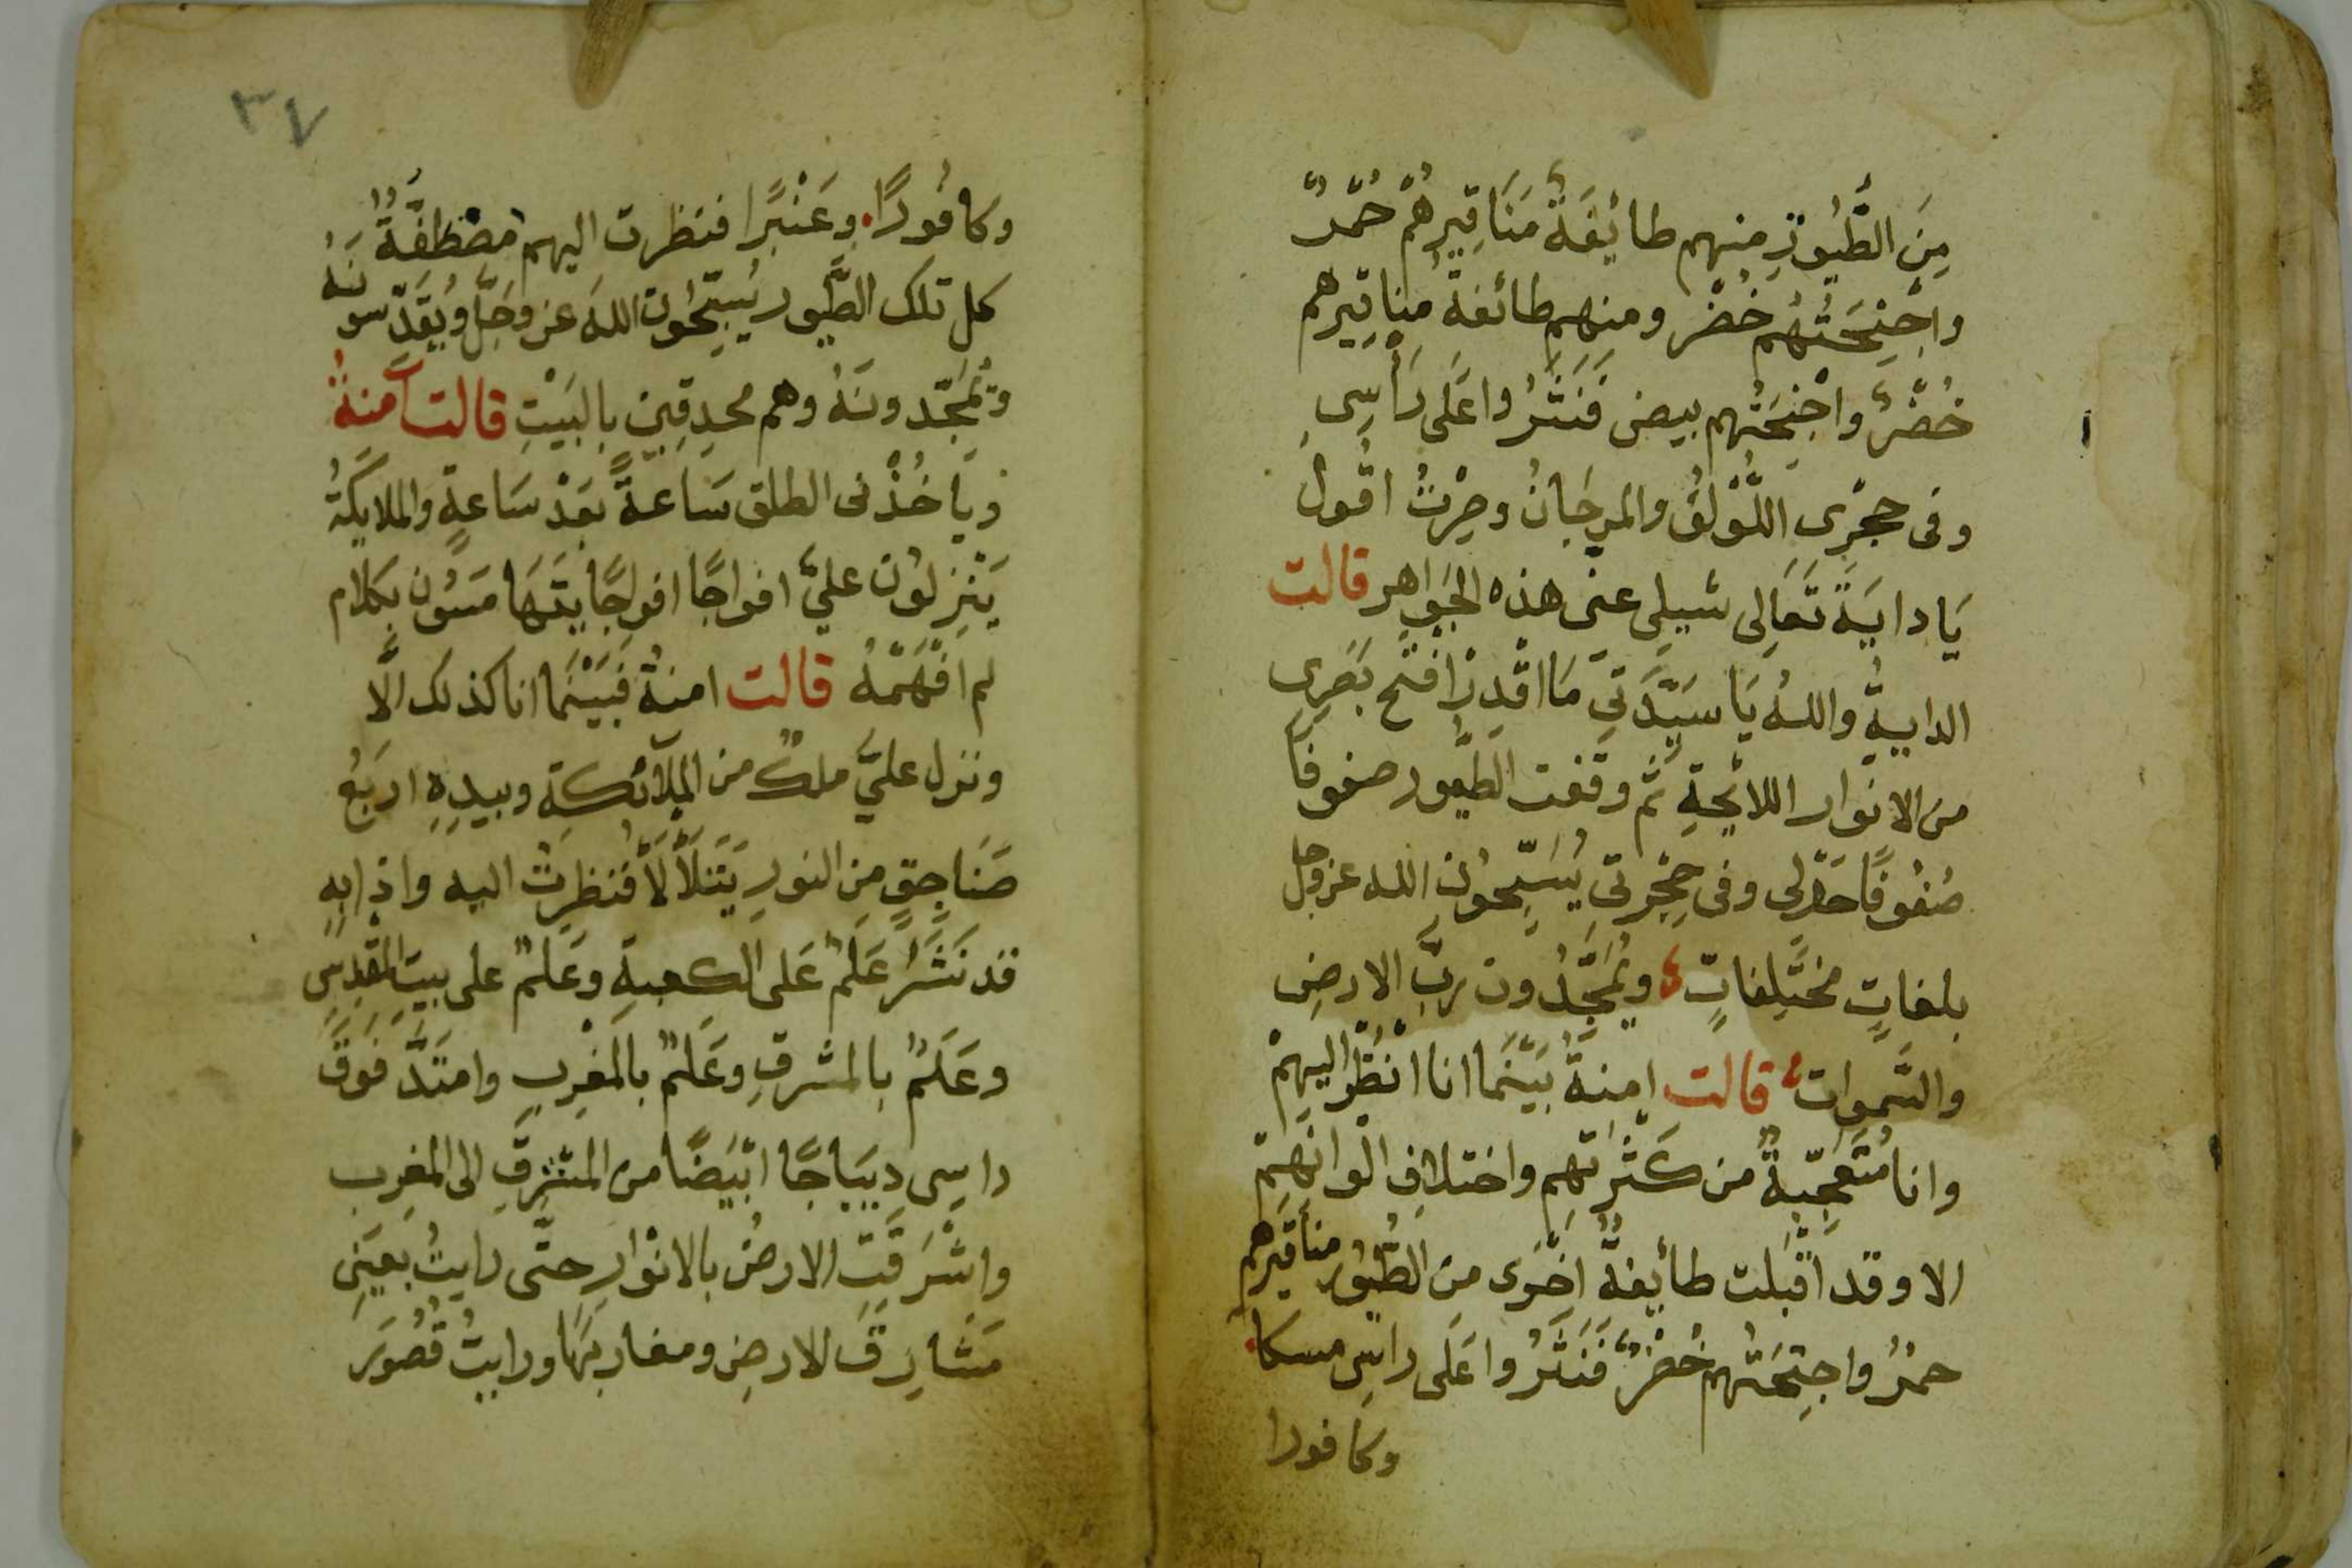 مِنَ الطُّيُورِ منهم طائِفَةٌ مَنَاقِيرِهُمْ حُمْرٌ
واجْنِحَتُهُم خُضْر ومنهم طائفةٌ مناقِيرهم
خُضْرٌ واجْنِحَتُهم بيض فَنَثَرُوا عَلَى رَأسِى
وفى حجرِى اللُّؤْلُؤ والمرجَانُ وصِرْتُ اقُولُ
يَا دايَةَ تَعَالِى شيلِى عنى هذه الجَوَاهر قالت
الدايةُ واللهُ يَا سَيِّدَتِي مَا اقْدِرْ افتح بَصَرِى
من الانوار اللائِحَةِ ثم وقفت الطُّيور صفوفًا
صُفُوفًا حَوْلى وفى حِجْرَتِى يُسَبِّحُونَ الله عز وجل
بلغاتٍ مختَلِفاتٍ ويُمَجِّدُون ربِّ الارضِ
والسَّموات قالت امِنةُ بَيْنَمَا انا انْظُرْ اليهِمْ
وانا مُتَعَجِّبةٌ من كَثْرَتِهِم واختلافِ الْوانِهِم
الا وقد اقْبَلت طائِفةٌ اخْرَى من الطُّيُور مناقيرهم
حمْرُ واجنِحَتُهم خُضْرٌ فَنَثَرُوا عَلَى راسِى مسكا
وكافورا
٣٧
وكافُورًا وعَنْبَرًا فنظرت اليهم مصْطَفَّةٌ
كل تلك الطُّيور يُسَبِّحُون اللهَ عز وجَلَّ ويُقَدِّسونَهُ
وَيُمَجِّدونَهُ وهم محدِقِين بالبَيْتِ قالت آمنةُ
ويَاخُذْنى الطلق سَاعةً بَعْدْ سَاعةٍ والملايكَةُ
يَنْزِلُون عليَّ افواجًا افواجًا يتَهَامَسُون بكلام
لم افْهَمْهُ قالت امنةُ فَبَيْنَمَا انا كذلك الَّا
ونزل عليَّ ملكٌ من الملآئكةِ وبيدِهِ اربَعُ
صَنَاجِقٍ مِن النورِ يَتَلَألَأ فنظرتُ اليه واذا بِهِ
قد نَشَرَ عَلَمٌ عَلى الكعبةِ وعَلَمٌ على بيت المقْدِسِ
وعَلَمٌ بالمشرقِ وعَلَمٌ بالمَغْرِبِ وامتَدَّ فَوْقَ
راسِى دِيبَاجًا ابْيَضًا من المشْرِقِ الى المغرِب
واشْرَقَتِ الارضُ بالانْوَارِ حتَّى رايتُ بعَينِى
مَشَارِقَ الارضِ ومغاربَهَا ورايتُ قُصُورَ